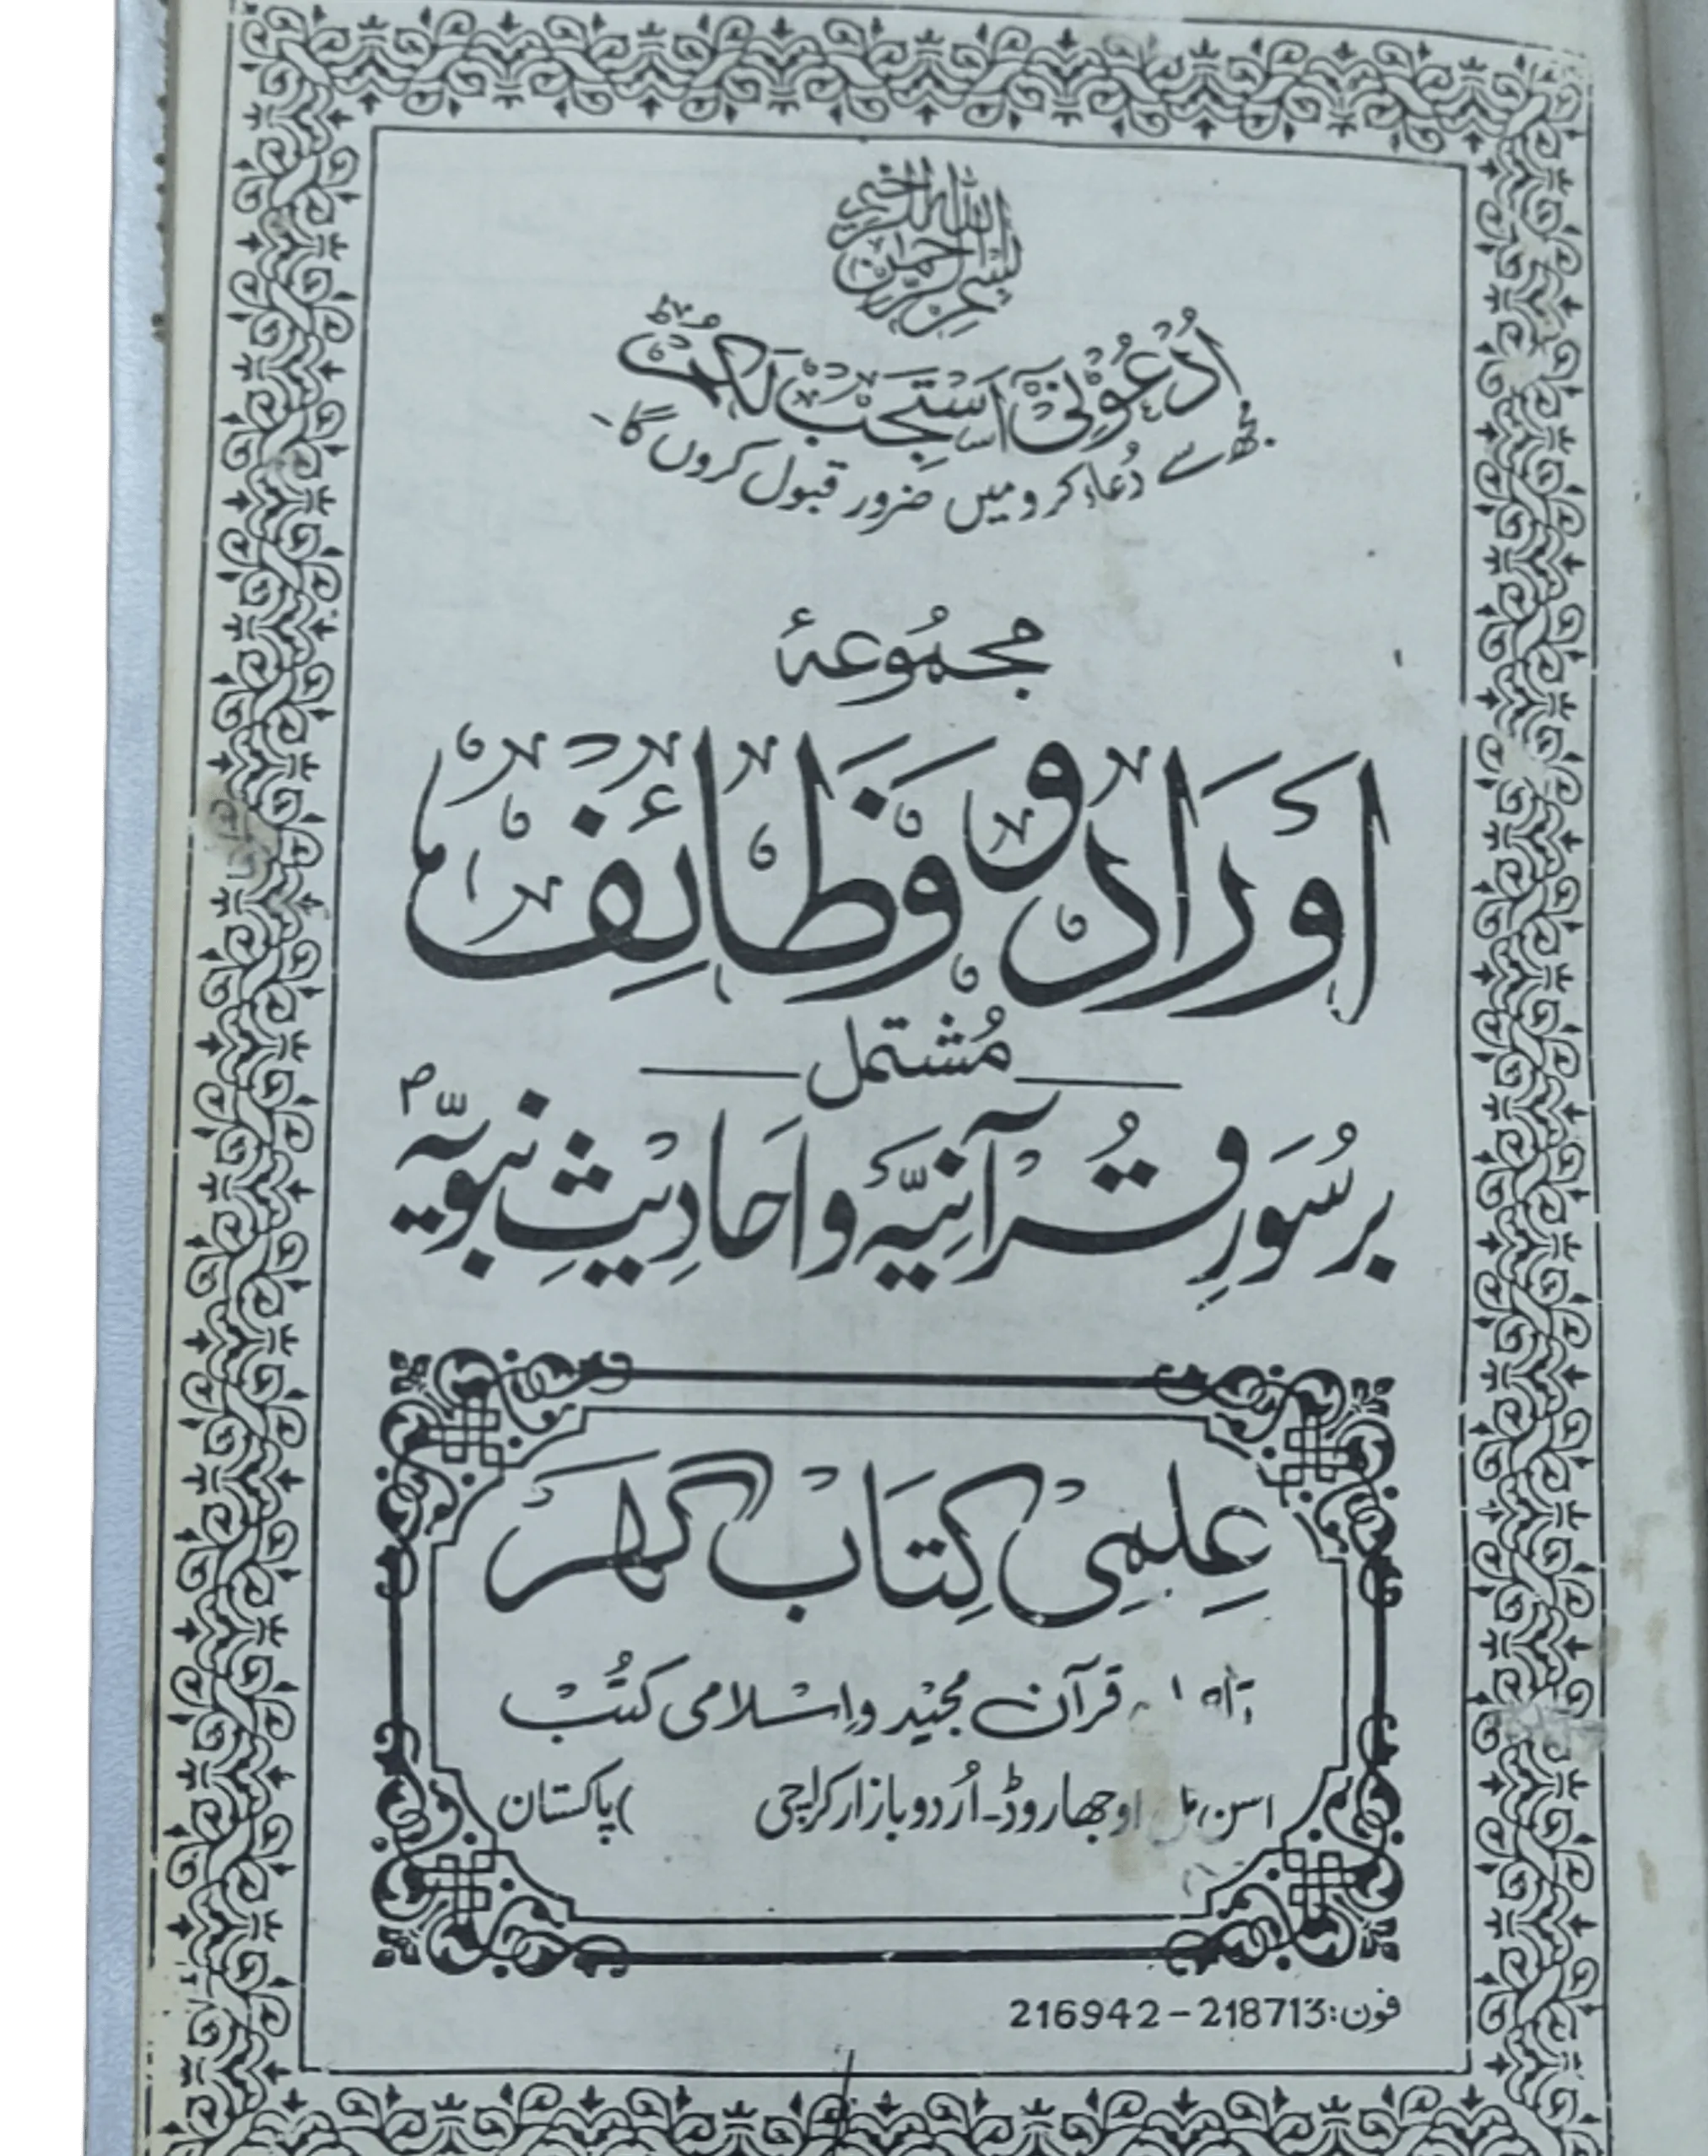 بسم الله الرحمن الرحيم
اُدْعُوْنِیْٓ اَسْتَجِبْ لَكُمْ
مجھ سے دُعاء کرو میں ضرور قبول کروں گا۔
مجمُوعۂ
اَورَاد و وَظَائِف
مُشتمل
بر سُوَرِ قُرآنِیَّہ و اَحادِیثِ نبویّہ ؐ
عِلمِی کِتَاب گھَر
قرآن مجید و اسلامی کتُب
اوجھا روڈ۔ اُردو بازار کراچی پاکستان
فون: 218713 – 216942